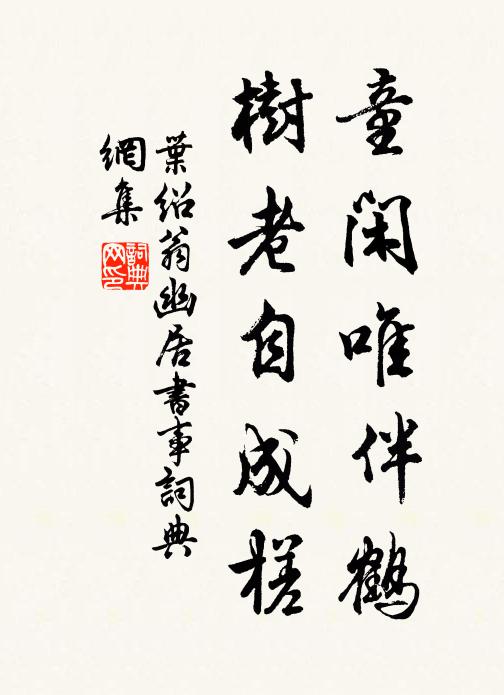 童閑唯伴鶴
樹老自成槎
葉紹翁幽居書事詞典
網集
詞典
网印